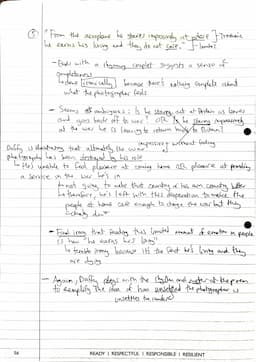 ⑤ "From the aeroplane he stares impassively at where
he earns his living and they do not care."
- Ends with a rhyming couplet suggests a sense of
completeness
↳ done ironically because there's nothing complete about
what the photographer feels
- Seems ambiguous: is he staring out at Britain as he leaves
and goes back off to war? OR is he staring impassively
at the war he is leaving to return to Britain?
impassively: without feeling
Duffy is illustrating that ultimately the war
photographer has been destroyed by his role
↳ He's unable to feel pleasure at coming home OR pleasure at providing
a service in the war he's in
↳ not going to make that country or his own country better
↳ therefore, he's left with this desperation to make the
people at home care enough to change the war but they
clearly don't
- Final irony that feeling this limited amount of emotion in people
is how "he earns his living"
↳ terrible irony because it's the fact he's living and they
are dying
- Again, Duffy plays with the rhythm and meter of the poem
to exemplify the idea of how unsettled the photographer is
- unsettles the reader
56
READY | RESPECTFUL | RESPONSIBLE | RESILIENT